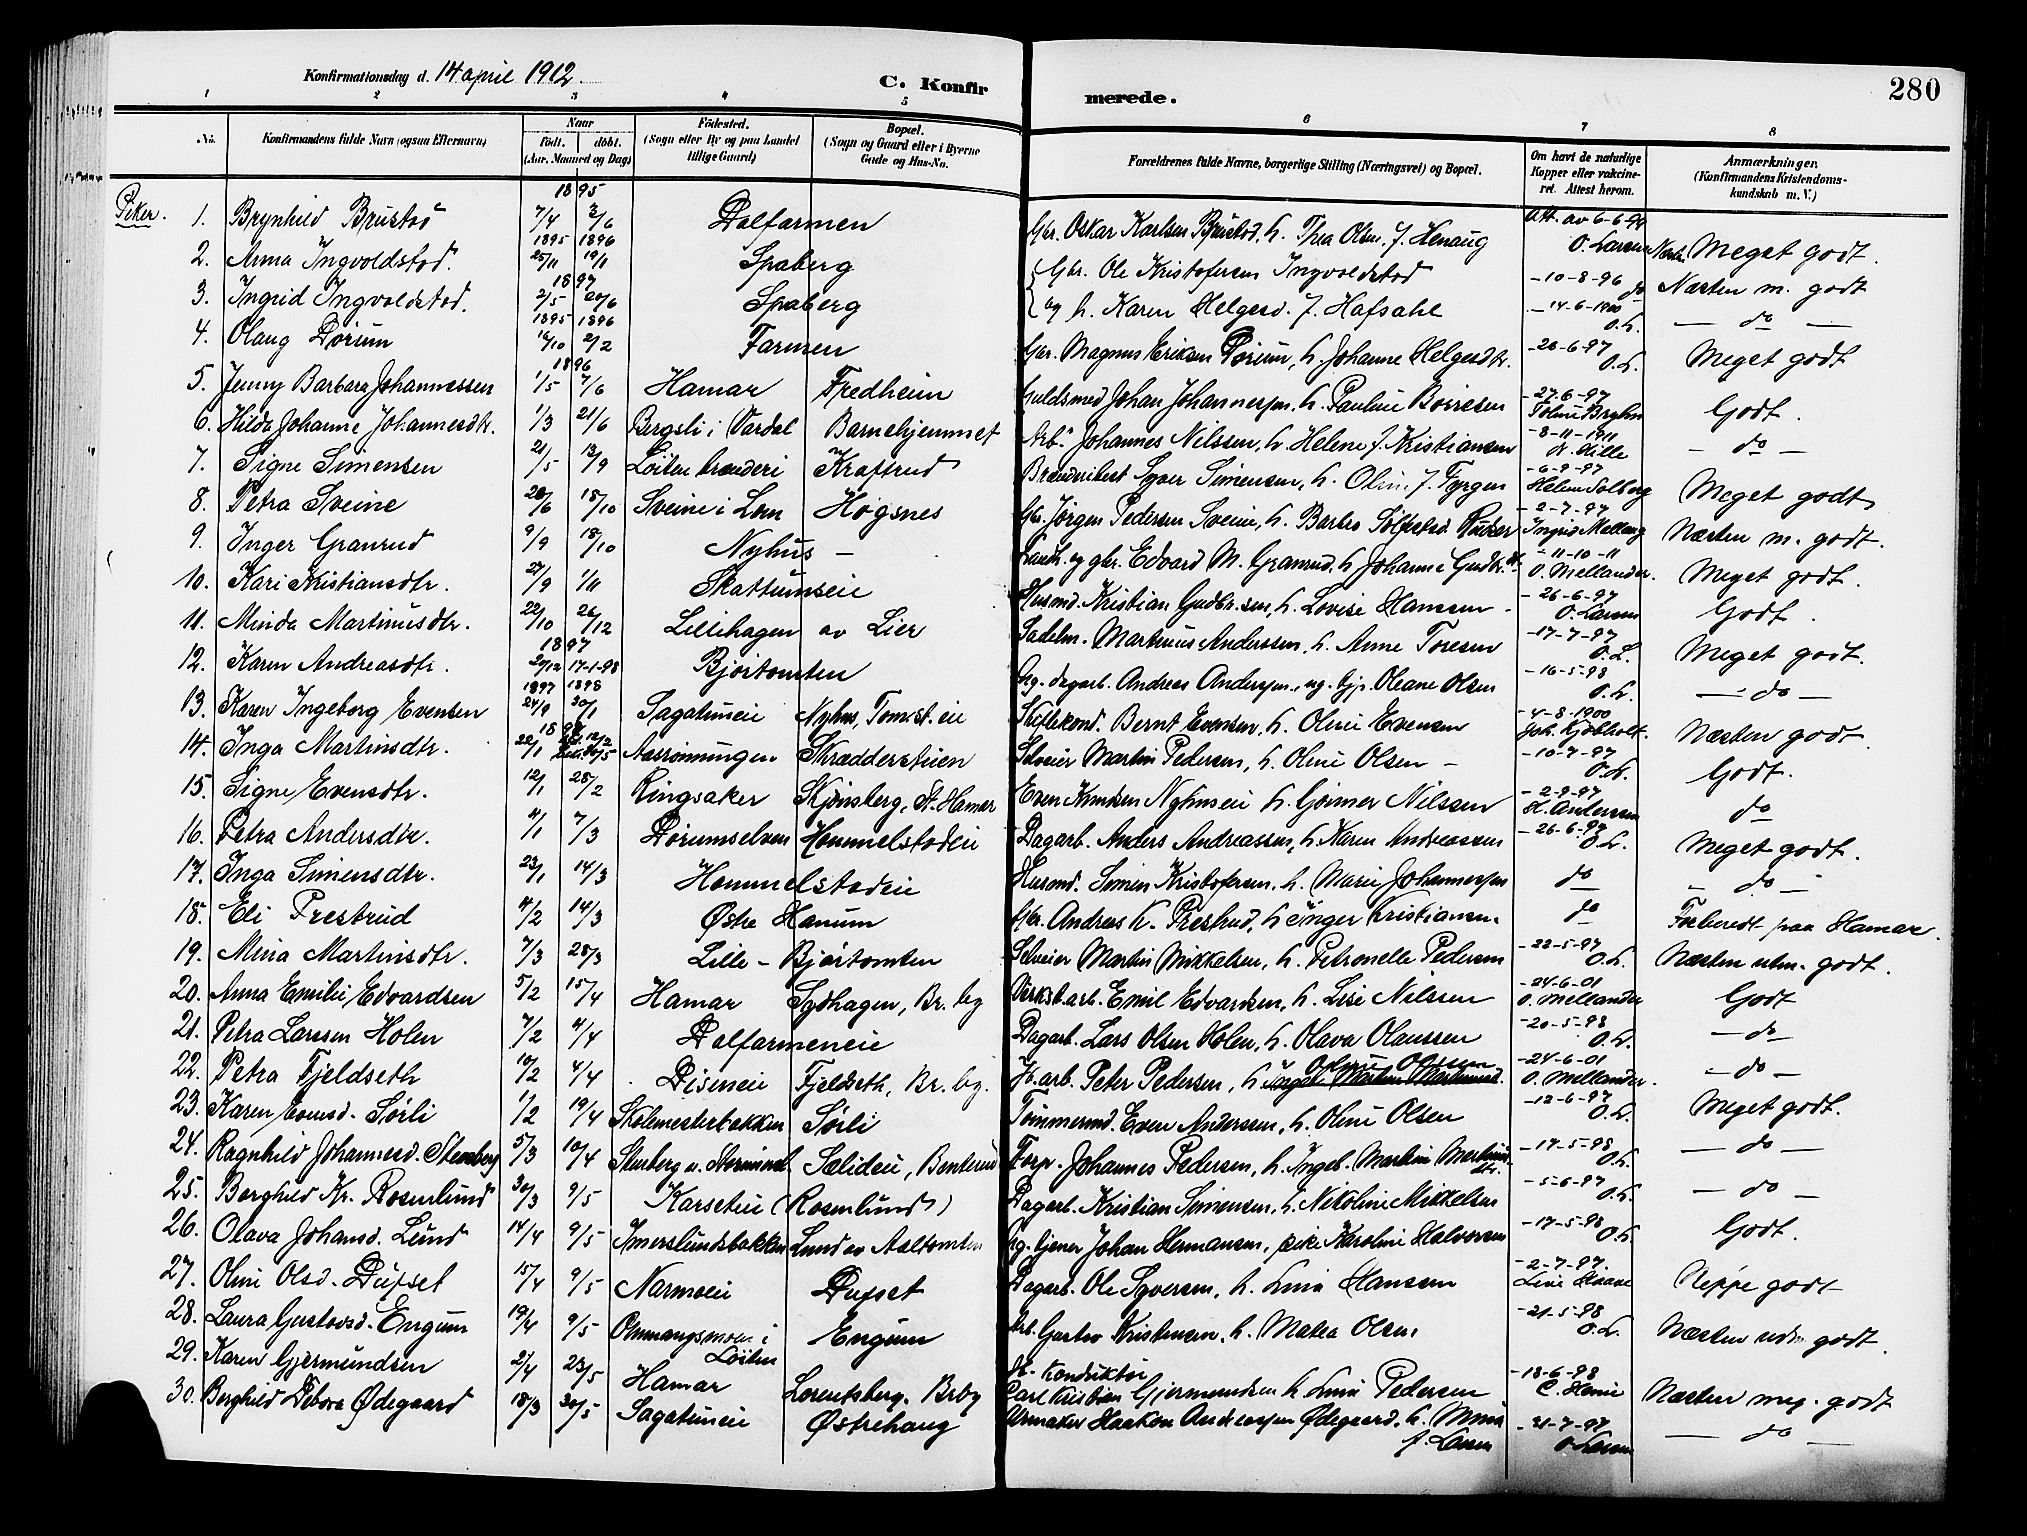 280
Konfirmationsdag d. 14 april 1912.
C. Konfirmerede.
1 2 3 4 5 6 7 8
No. Konfirmandens fulde Navn (ogsaa Efternavn) Naar Født. døbt. (Aar, Maaned og Dag) Fødested. (Sogn eller By og paa Landet tillige Gaard) Bopæl. (Sogn og Gaard eller i Byerne Gade og Hus-No. Forældrenes fulde Navne, borgerlige Stilling (Næringsvei) og Bopæl. Om havt de naturlige Kopper eller vaccineret. Attest herom. Anmærkninger. (Konfirmandens Kristendomskundskab m. V.)
Piker.
1895
1. Brynhild Brustad 7/4 2/6 Dalfarmen Gbr. Oskar Karlsen Brustad, h. Thea Olsen f. Henaug Att. av 6-6-99 O. Larsen Meget godt.
1895 1896
2. Anna Ingvoldstad. 25/11 19/1 Spaberg Gbr. Ole Kristofersen Ingvoldstad -10-8-96 do Næsten m. godt
1897
3. Ingrid Ingvoldstad. 2/5 20/6 Spaberg og h. Karen Helgesd. f. Hafsahl -14-6-1900 O.L. - do -
1895 1896
4. Olaug Dørum 16/10 2/2 Farmen Gbr. Magnus Eriksen Dørum, h. Johanne Helgesdtr. -26-6-97 O.L. Meget godt
1896
5. Jenny Barbara Johannessen 1/5 7/6 Hamar Fredheim Guldsmed Johan Johannessen, h. Pauline Borresen -27-6-97 Bryhn Godt.
6. Hilda Johanne Johannesdtr. 1/3 21/6 Bergsli i Vardal Barnehjemmet Arb. Johannes Nilssen, h. Helene f. Kristiansen -8-11-1911 - do -
7. Signe Simensen 21/5 13/9 Løiten brænderi Kraftrud Brænderibest. Syver Simensen, h. Oline f. Fyrgen -6-9-97 Helene Solberg Meget godt
8. Petra Sveine 28/6 18/10 Sveine i Lom Høgsnes Gbr. Jørgen Pedersen Sveine, h. Barbro -2-7-97 Næsten m. godt.
9. Inger Granrud 9/9 18/10 Nyhus - Landh. og gbr. Edvard M. Granrud, h. Johanne Gudbr.dtr. -11-10-11 O. Mellander. Meget godt.
10. Kari Kristiansdtr. 27/9 1/11 Skattumseie Husmd. Kristian Gudbr.sen, h. Lovise Hanssen -26-6-97 O. Larsen Godt.
11. Minda Martinusdtr. 22/10 26/12 Lillehagen av Lier Sadelm. Martinus Anderssen, h. Anne Toresen -17-7-97 O.L. Meget godt.
1897
12. Karen Andreasdtr. 20/12 17-1-98 Bjørtomten Ug. dagarb. Andreas Anderssen, ug. tjp. Oleane Olsen -16-5-98 O.L. - do -
1897 1898
13. Karen Ingeborg Evensen 24/9 30/1 Sagatuneie Nyhus, Tomst. eie Skiftekond. Bernt Evensen, h. Oline Evensen -4-8-1900 Joh. Kjøbholt. Næsten godt
14. Inga Martinsdtr. 22/1 Aasrønningen Skrædderstuen Selveier Martin Pedersen, h. Oline Olsen - -10-7-97 O.L. Godt.
15. Signe Evensdtr. 12/1 28/2 Ringsaker Skjønsberg, St. Hamar Even Knudsen Nyhuseie h. Gønner Nilssen -2-9-97 H. Andersen do
16. Petra Andersdtr. 4/1 7/3 Dørumselven Hommelstadeie Dagarb. Anders Andreassen, h. Karen Andreassen -26-6-97 O.L. Meget godt.
17. Inga Simensdtr. 23/1 14/3 Hommelstadeie Husmd. Simen Kristofersen, h. Marie Johannessen do - do -
18. Eli Prestrud 4/2 14/3 Østre Hanum Gbr. Andreas K. Prestrud, h. Inger Kristiansen do Forberedt paa Hamar.
19. Mina Martinsdtr. 7/3 28/3 Lille-Bjørtomten Selveier Martin Mikkelsen, h. Petronelle Pedersen -22-5-97 O.L. Næsten utm. godt.
20. Anna Emilie Edvardsen 5/2 15/4 Hamar Sydhagen, Br. by Verkst.arb. Emil Edvardsen, h. Lise Nilssen -24-6-01 O. Mellander Godt
21. Petra Larssen Holen 7/2 4/4 Dalfarmeneie Dagarb. Lars Olsen Holen, h. Olava Olaussen -20-5-98 O.L. - do -
22. Petra Fjeldseth 10/2 4/4 Diseneie Fjeldseth, Br. by. Jb.arb. Peter Pedersen, h. -24-6-01 O. Mellander. - do -
23. Karen Evensd. Sørli 1/2 19/4 Skolemesterbakken Sørli Tømmermd. Even Anderssen, h. Oline Olsen -12-6-97 O.L. Meget godt.
24. Ragnhild Johannesd. Stenberg 5/3 10/4 Stenberg Sælideie, Benterud Forp. Johannes Pedersen, h. Ingeb. Martine Martinsdtr. -17-5-98 O.L. - do -
25. Borghild Kr. Rosenlund 30/3 9/5 Karseteie (Rosenlund) Dagarb. Kristian Simensen, h. Nikoline Mikkelsen -5-6-97 O.L. - do -
26. Olava Johansd. Lund 14/4 9/5 Imerslundsbakken Lund av Aaltomten Ug. tjener Johan Hermansen, pike Karoline Halvorsen -17-5-98 O.L. Godt.
27. Oline Olsd. Dufset 15/4 9/5 Narmoeie Dufset Dagarb. Ole Syversen, h. Lina Hansen -2-7-97. Line Haave Neppe godt
28. Laura Gustavsd. Engum 19/4 9/5 Ommangsmoen i Løiten Engum Arb. Gustav Kristensen, h. Matea Olsen -21-5-98 O.L. Næsten utm. godt.
29. Karen Gjermundsen 2/4 23/5 Hamar Lorentsberg. Brby Jb. Konduktør Carl Kristian Gjermundsen h. Lina Pedersen -18-6-98 Næsten meg. godt
30. Borghild Debora Ødegaard 18/3 30/5 Sagatuneie Østrehaug Urmaker Haakon Anderssen Ødegaard, h. Mina f. Larsen -21-7-97 O. Larsen - do -